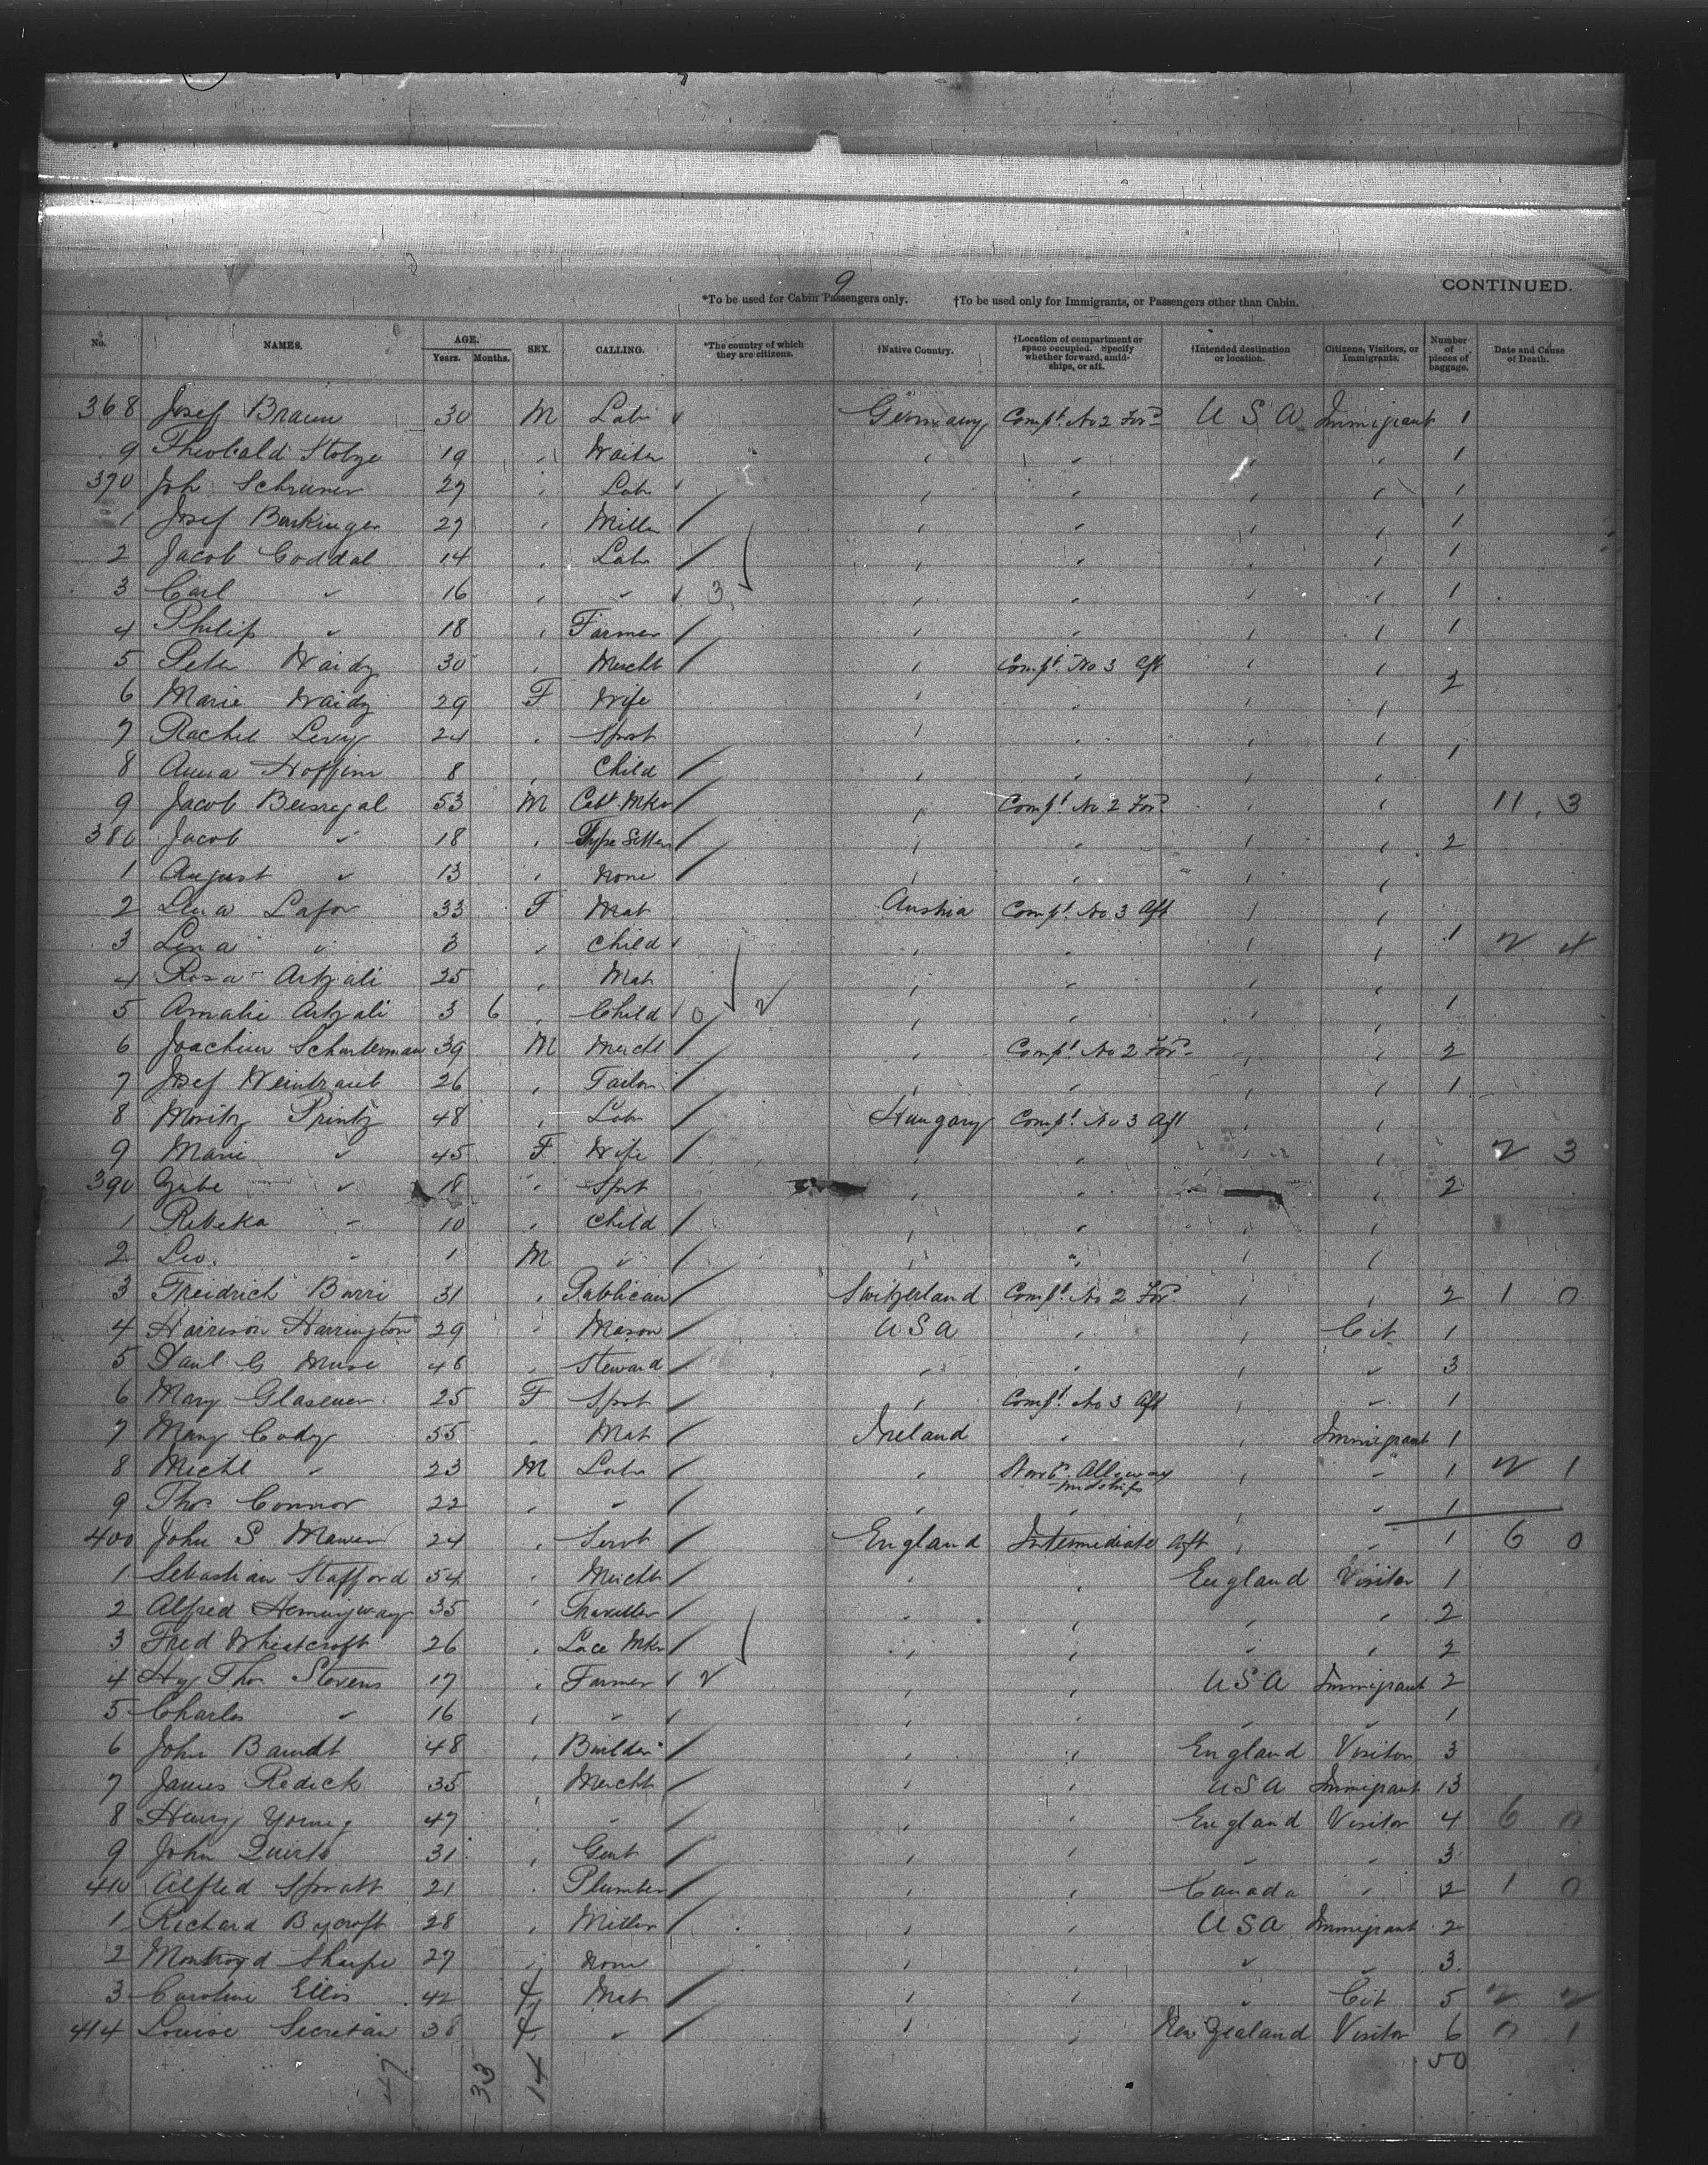 9
CONTINUED.
*To be used for Cabin Passengers only. †To be used only for Immigrants, or Passengers other than Cabin.
No. NAMES. AGE. Years. Months. SEX. CALLING. *The country of which they are citizens. †Native Country. †Location of compartment or space occupied. Specify whether forward, amidships, or aft. †Intended destination or location. Citizens, Visitors, or Immigrants. Number of pieces of baggage. Date and Cause of Death.
368 Josef Braun 30 M Labr Germany Compt. No 2 Ford U S A Immigrant 1
9 Theobald Stolze 19 " Waiter " " " " 1
370 Joh Schriner 27 " Labr " " " " 1
1 Josef Barkinger 27 " Mille " " " " 1
2 Jacob Coddal 14 " Labr " " " " 1
3 Carl " 16 " " 3 " " " " 1
4 Philip " 18 " Farmer " " " " 1
5 Peter Waidz 30 " Mercht " Compt. No 3 Aft " "
6 Marie Waidz 29 F Wife " " " " 2
7 Rachel Levy 24 " Spst " " " " 1
8 Anna Hoffim 8 " Child " " " "
9 Jacob Beisregal 53 M Cabt. Mkr " Compt. No 2 Ford " " 11 3
380 Jacob " 18 " Type Setter " " " " 2
1 August " 13 " None " " " "
2 Lena Lafor 33 F Mat Austria Compt. No 3 Aft " "
3 Lena " 3 " Child " " " " 1 2 4
4 Rosa Artzali 25 " Mat " " " "
5 Amalie Artzali 3 6 " Child 0 2 " " " " 1
6 Joachim Schusterman 39 M Mercht " Compt. No 2 Ford " " 2
7 Josef Weintraub 26 " Tailor " " " " 1
8 Moritz Printz 48 " Labr Hungary Compt. No 3 Aft " "
9 Marie " 45 F Wife " " " " 2 3
390 Gabe " 18 " Spst " " " " 2
1 Rebeka " 10 " Child " " " "
2 Leo. " 1 M " " " " "
3 Freidrich Burri 31 " Publican Switzerland Compt. No 2 Ford " " 2 1 0
4 Harrison Harrington 29 " Mason U S A " " Cit 1
5 Paul G Muse 48 " Steward " " " " 3
6 Mary Glasener 25 F Spst " Compt. No 3 Aft " " 1
7 Mary Cody 55 " Mat Ireland " " Immigrant 1
8 Michl " 23 M Labr " Alleway midships " " 1 2 1
9 Thos. Connor 22 " " " " " " 1
400 John S Mawer 24 " Servt England Intermediate Aft " " 1 6 0
1 Sebastian Stafford 54 " Mercht " " England Visitor 1
2 Alfred Hemingway 35 " Traveller " " " " 2
3 Fred Wheatcroft 26 " Lace Mkr " " " " 2
4 Hy Thos. Stevens 17 " Farmer 2 " " U S A Immigrant 2
5 Charles " 16 " " " " " " 1
6 John Barndt 48 " Builder " " England Visitor 3
7 James Redick 35 " Mercht " " U S A Immigrant 13
8 Henry Young 47 " " " " England Visitor 4 6 0
9 John Quirk 31 " Gent " " " " 3
410 Alfred Spratt 21 " Plumber " " Canada " 2 1 0
1 Richard Bycroft 28 " Miller " " U S A Immigrant 2
2 Montroyd Sharpe 27 " None " " " " 3
3 Caroline Ellis 42 F Mat " " " Cit 5 2 2
414 Louise Secretan 38 F " " " New Zealand Visitor 6 0 1
47 33 14 50